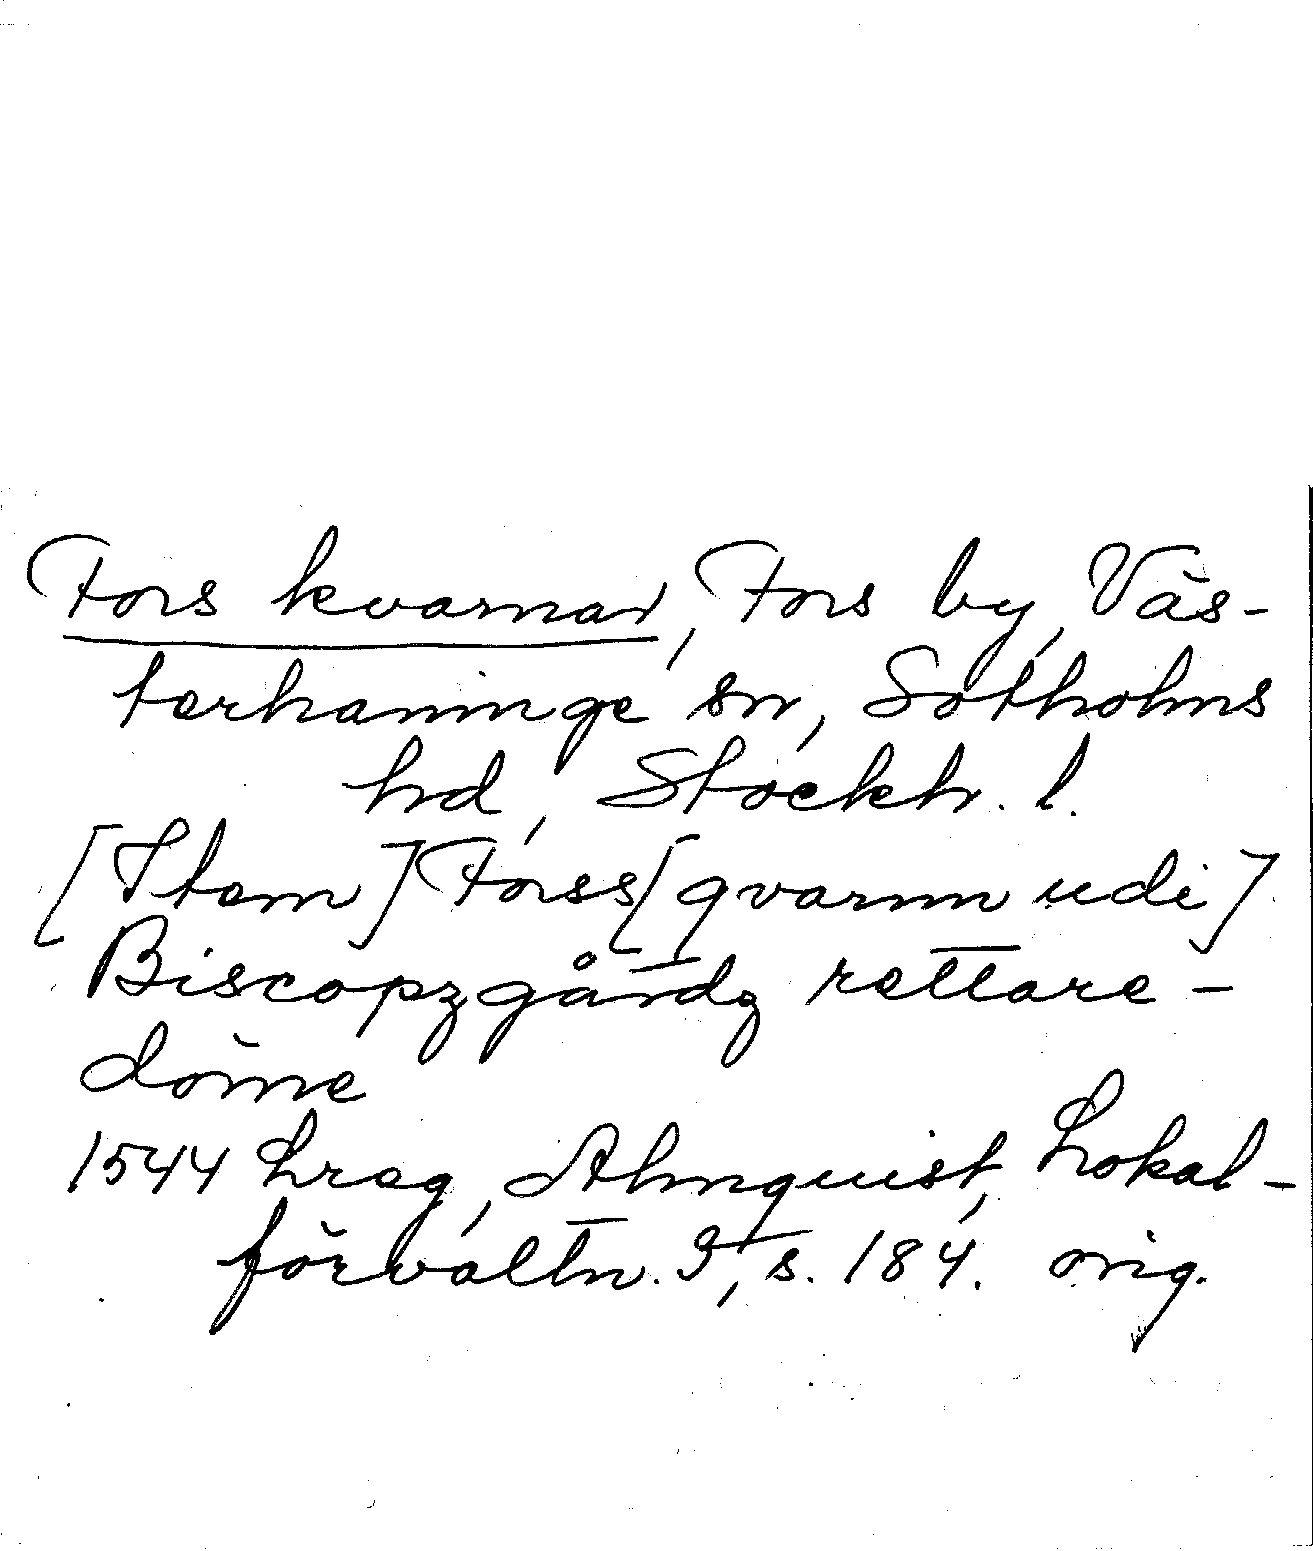 Fors kvarnar, Fors by, Väs-
terhaninge sn, Sotholms
hd, Stockh. l.
[Item] Forss [qvarnn udi]
Biscopzgårdz rettare-
döme
1544 Lreg, Almquist, Lokal-
förvaltn. I, s. 184. orig.